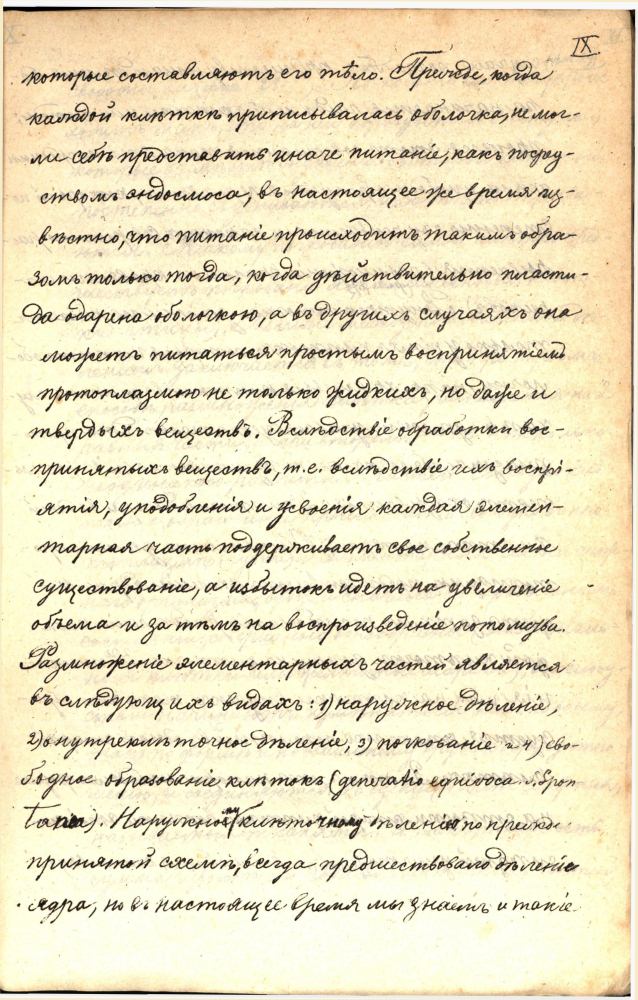 IX
которые составляютъ его тѣло. Прежде, когда
каждой клѣткѣ приписывалась оболочка, не мог-
ли себѣ представить иначе питаніе, какъ посред-
ствомъ эндосмоса, въ настоящее же время из-
вѣстно, что питаніе происходитъ такимъ обра-
зомъ только тогда, когда дѣйствительно пласти-
да одарена оболочкою, а въ другихъ случаяхъ она
можетъ питаться простымъ воспринятіемъ
протоплазмою не только жидкихъ, но даже и
твердыхъ веществъ. Вслѣдствіе обработки вос-
принятыхъ веществъ, т.е. вслѣдствіе ихъ воспрі-
ятія, уподобленія и усвоенія каждая элемен-
тарная часть поддерживаетъ свое собственное
существованіе, а избытокъ идетъ на увеличеніе
объема и за тѣмъ на воспроизведеніе потомства.
Размноженіе элементарныхъ частей является
въ слѣдующихъ видахъ: 1) наружное дѣленіе,
2) внутреклѣточное дѣленіе, 3) почкованіе и 4) сво-
бодное образованіе клѣтокъ (generatio equivoca s. Spon
tanea). Наружному клѣточному дѣленію по прежде
принятой схемѣ, всегда предшествовало дѣленіе
ядра, но въ настоящее время мы знаемъ и такіе